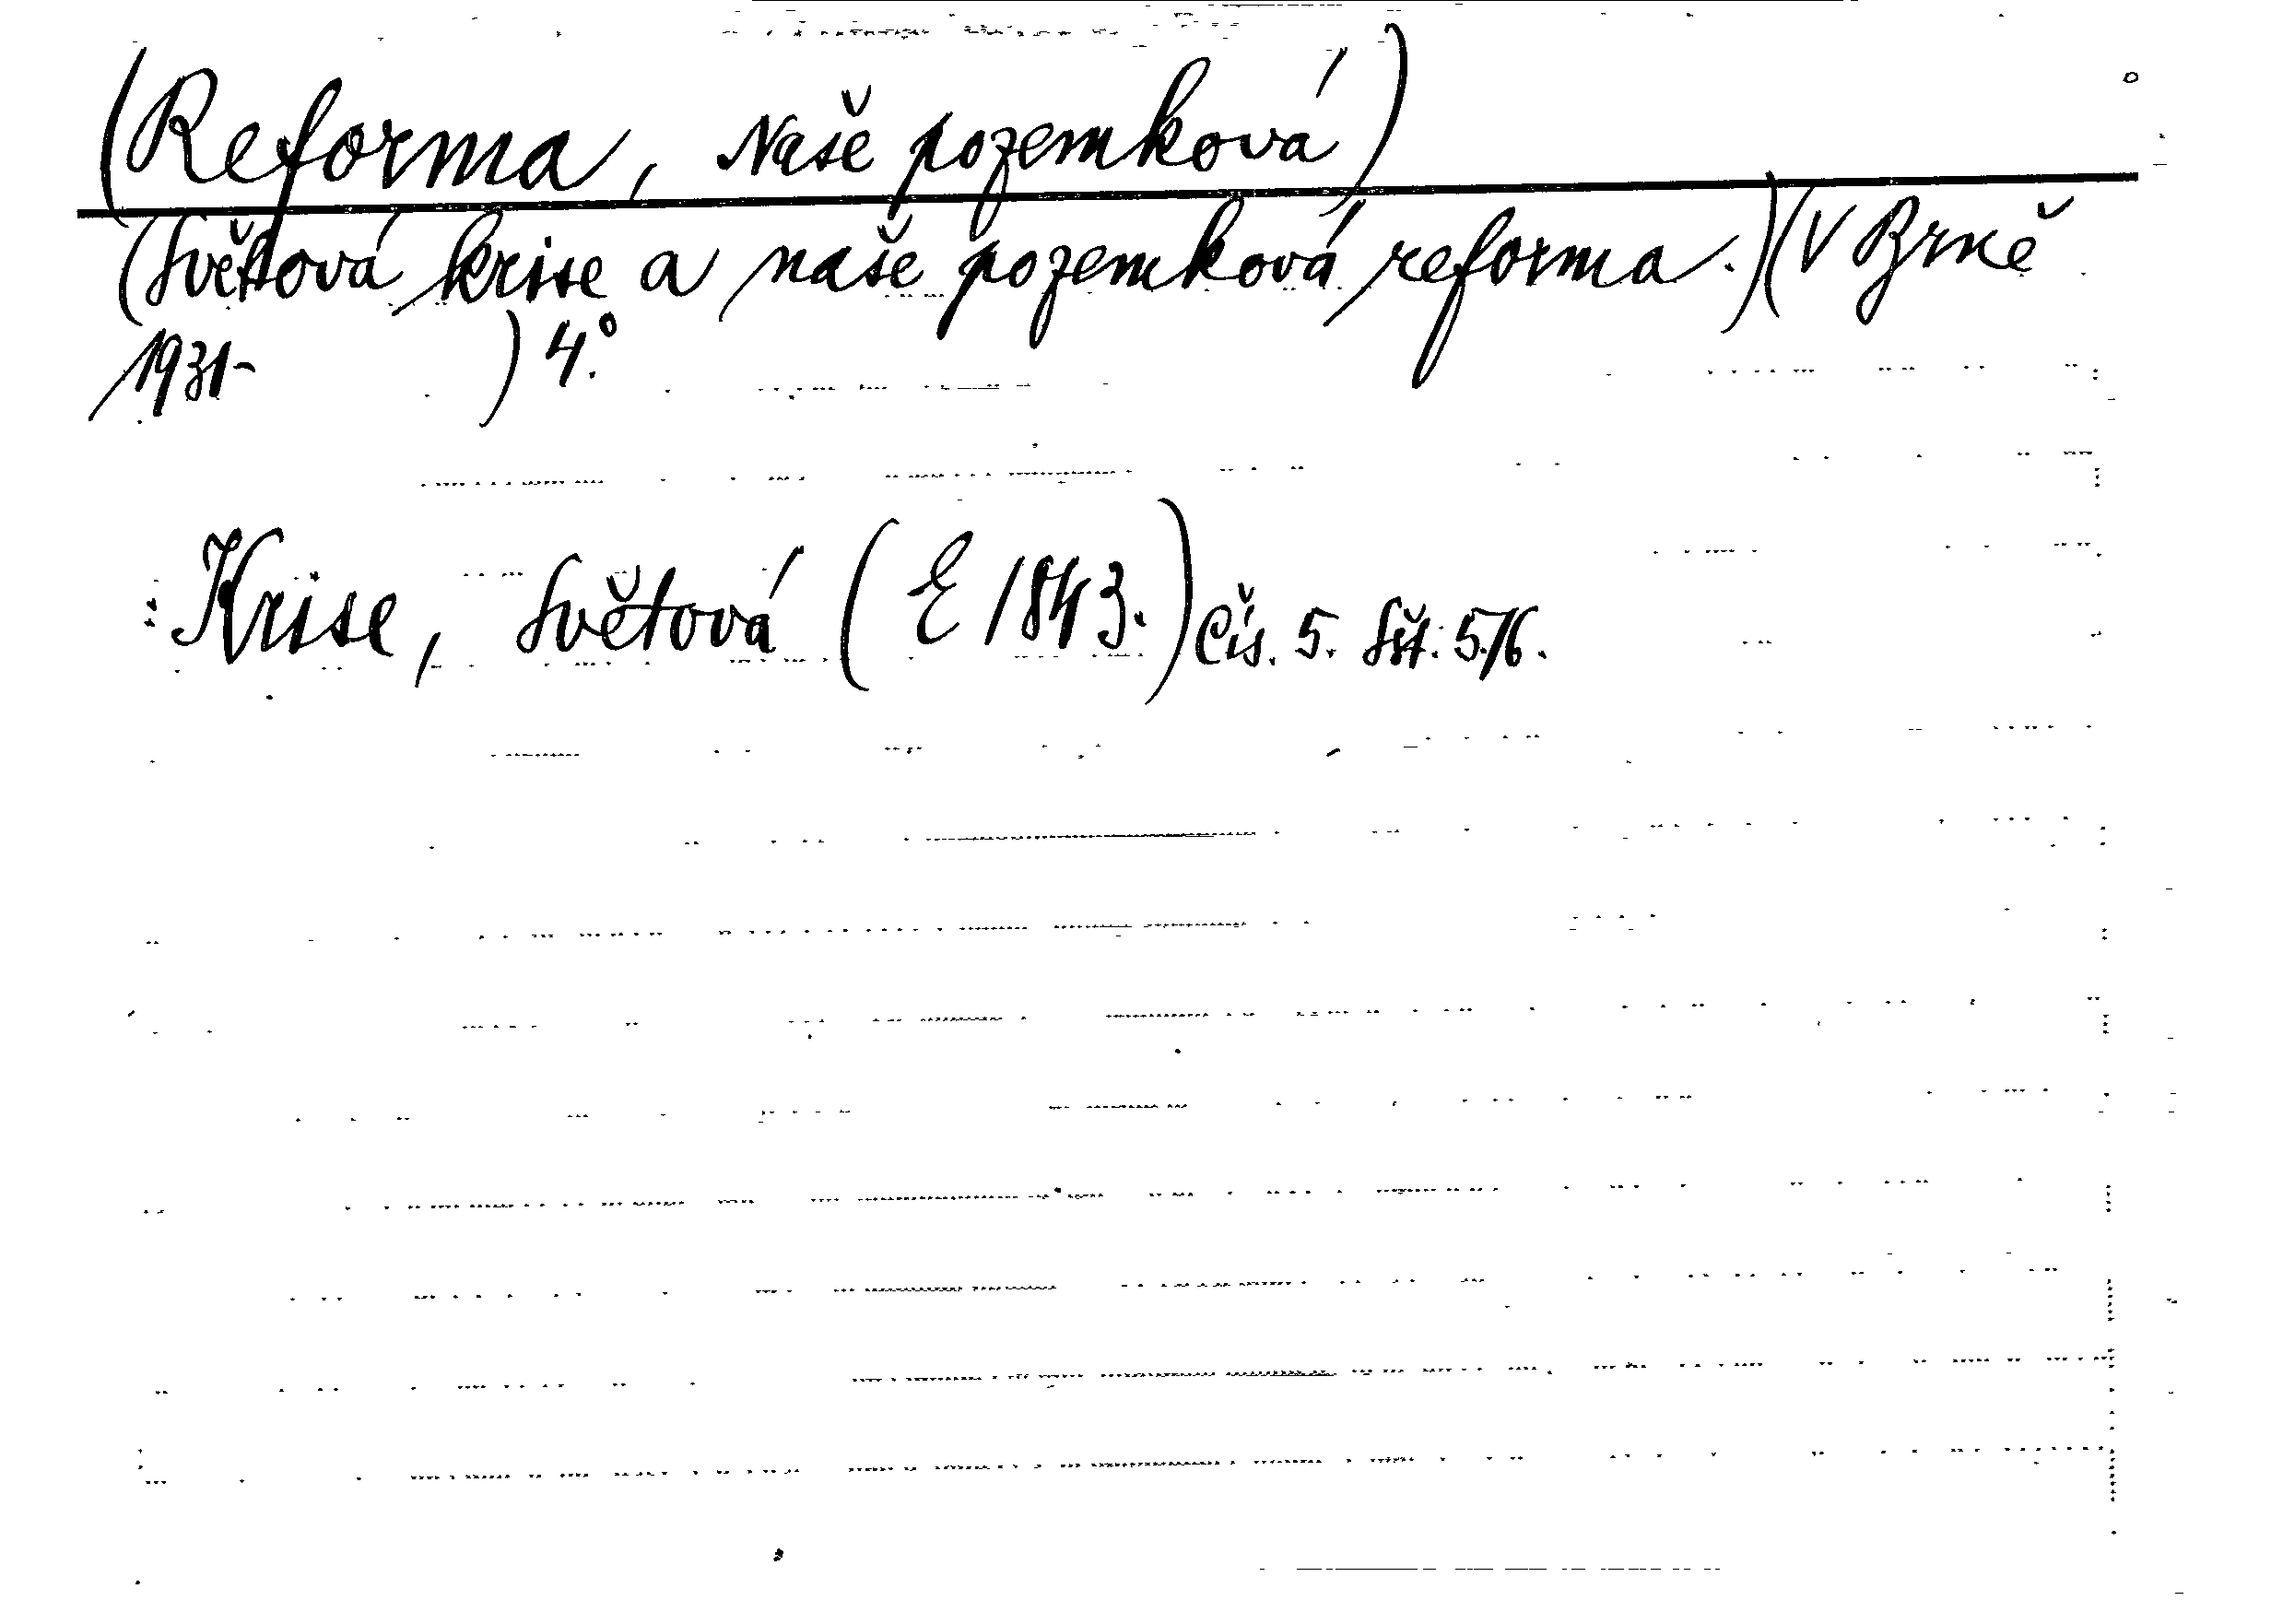 (Reforma, Naše pozemková)
(Světová krise a naše pozemková reforma.)(V Brně
1931- ) 4.°
Krise, Světová (E 1843.) Čís. 5. Sšt. 5./6.